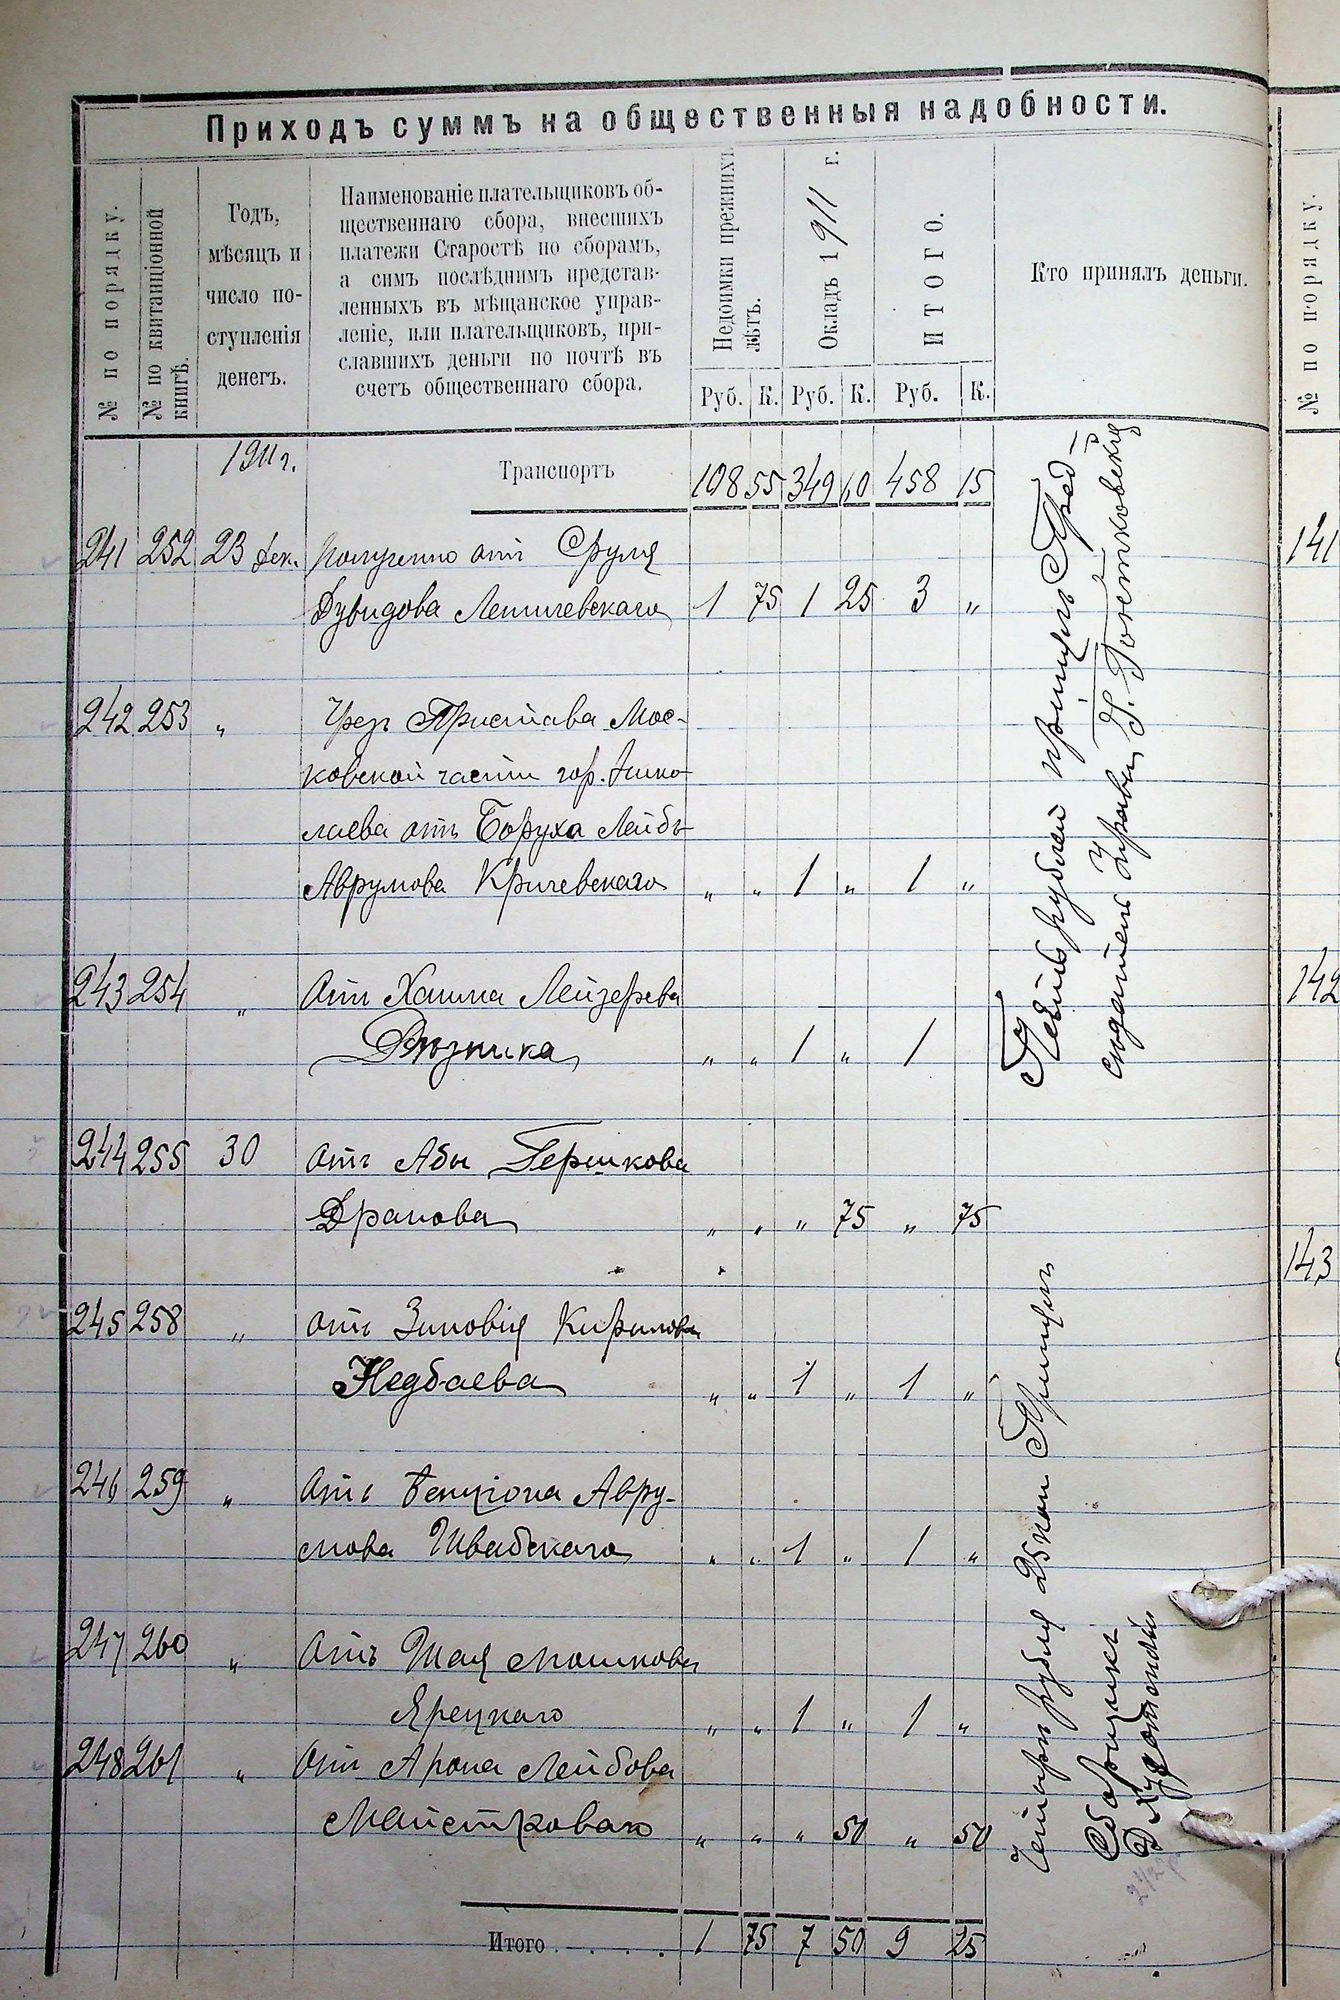 Приходъ суммъ на общественныя надобности.
№ по порядку.
№ по квитанціонной
книгѣ.
Годъ,
мѣсяцъ и
число по-
ступленія
денегъ.
Наименованіе плательщиковъ об-
щественнаго сбора, внесшихъ
платежи Старостѣ по сборамъ,
а симъ послѣднимъ представ-
ленныхъ въ мѣщанское управ-
леніе, или плательщиковъ, при-
славшихъ деньги по почтѣ въ
счетъ общественнаго сбора.
Недоимки прежнихъ
лѣтъ.
Окладъ 1911 г.
ИТОГО.
Кто принялъ деньги.
Руб. К. Руб. К. Руб. К.
1911 г. Транспортъ 108 55 349 60 458 15
241 252 23 Дек. Получено отъ Сруля
Дувидова Летичевскаго 1 75 1 25 3 "
242 253 " Чрезъ Пристава Мос-
ковской части гор. Нико-
лаева отъ Боруха Лейбъ
Аврумова Кричевскаго " " 1 " 1 "
243 254 " Отъ Хаима Лейзерева
Рѣзника " " 1 " 1
244 255 30 Отъ Абы Гершкова
Драпова " " " 75 " 75
245 258 " Отъ Зиновія Кирилова
Недбаева " " 1 " 1 "
246 259 " Отъ Бенціона Авру-
мова Швабскаго " " 1 " 1 "
247 260 " Отъ Шая Мошкова
Ярецкаго " " 1 " 1 "
248 261 " Отъ Арона Лейбова
Майстроваго " " " 50 " 50
Итого . . . . . 1 75 7 50 9 25
Пять рублей принялъ Пред-
сѣдатель Управы
Четыре рубля 25 коп Принялъ
Сборщикъ
№ по порядку.
141
142
143